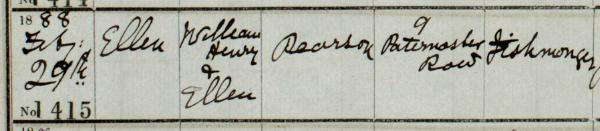 1888
Feby: 29th
Ellen
William Henry & Ellen
Pearson
9 Paternoster Row
Fishmonger
No 1415